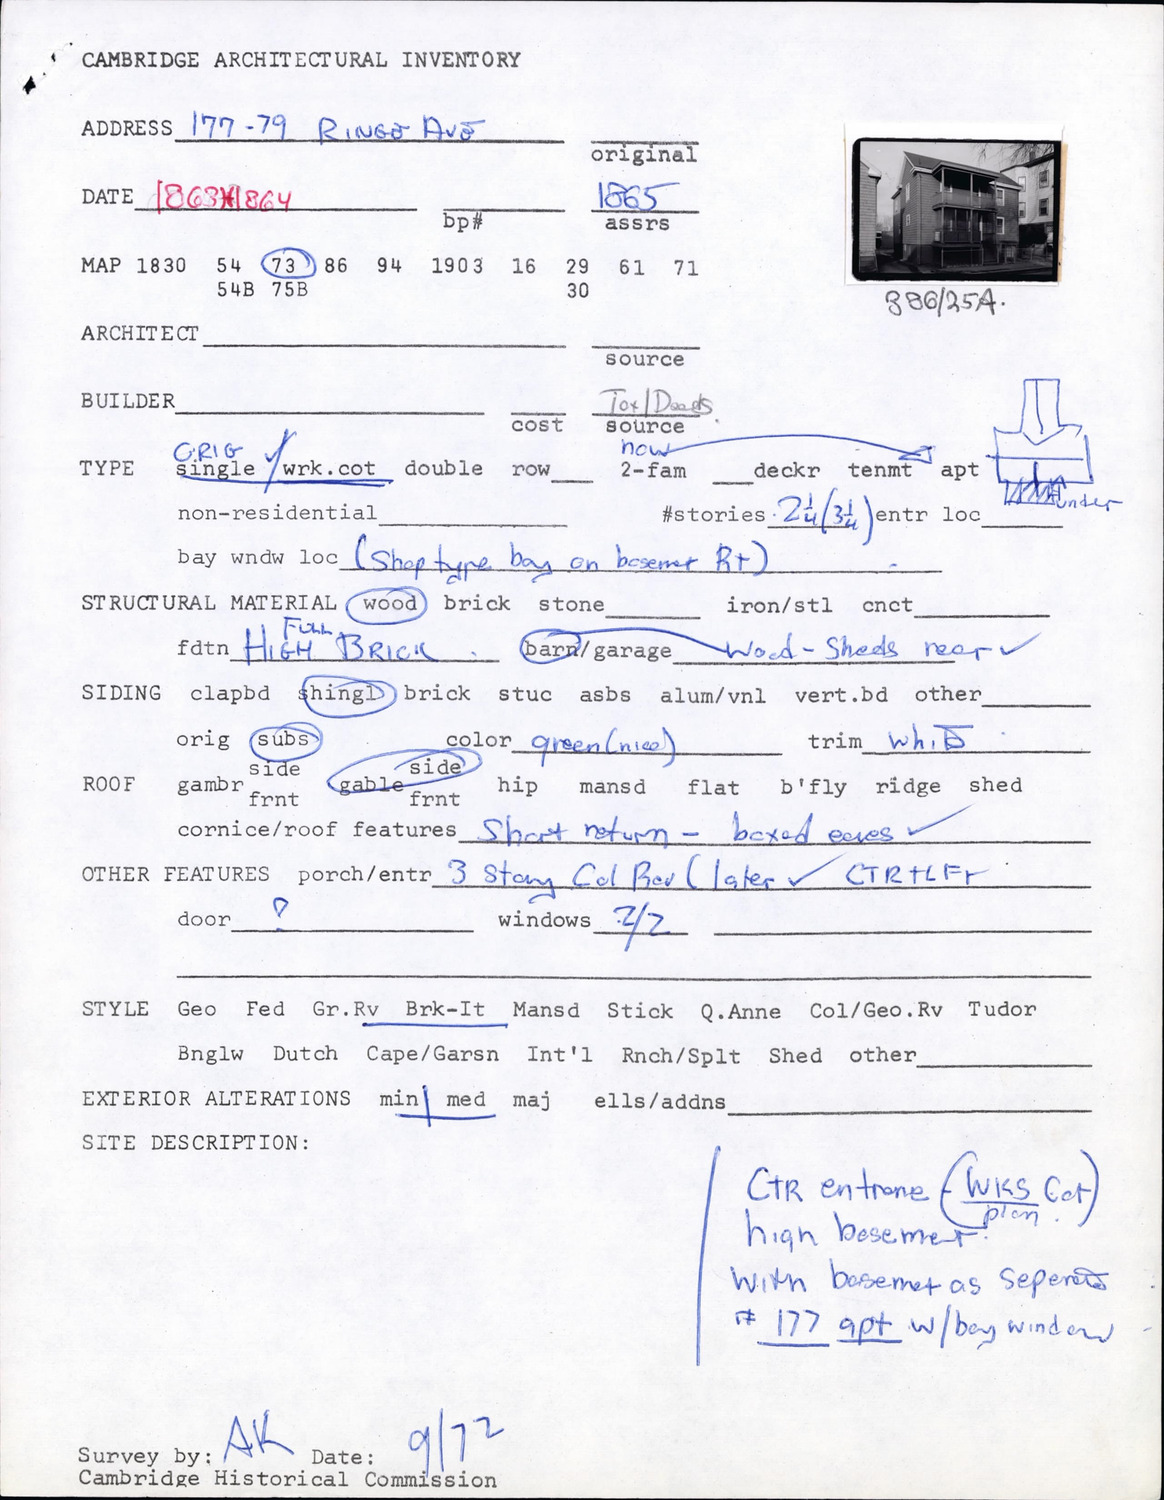 CAMBRIDGE ARCHITECTURAL INVENTORY
ADDRESS 177-79 RINGE AVE
original
DATE 1863-1864 1865
bp# assrs
MAP 1830 54 73 86 94 1903 16 29 61 71
54B 75B 30
886/25A.
ARCHITECT
source
BUILDER Tax/Deeds
cost source
ORIG now
TYPE single / wrk.cot double row 2-fam deckr tenmt apt
under
non-residential #stories 2¼(3¼) entr loc
bay wndw loc (Shop type bay on basemet Rt)
STRUCTURAL MATERIAL wood brick stone iron/stl cnct
FULL
fdtn HIGH BRICK barn/garage Wood-Sheds rear ✓
SIDING clapbd shingl brick stuc asbs alum/vnl vert.bd other
orig subs color green (nice) trim white
side side
ROOF gambr gable hip mansd flat b'fly ridge shed
frnt frnt
cornice/roof features Short return - boxed eaves ✓
OTHER FEATURES porch/entr 3 Story Col Rev (later ✓ CTR+LFt
door ? windows 2/2
STYLE Geo Fed Gr.Rv Brk-It Mansd Stick Q.Anne Col/Geo.Rv Tudor
Bnglw Dutch Cape/Garsn Int'l Rnch/Splt Shed other
EXTERIOR ALTERATIONS min med maj ells/addns
SITE DESCRIPTION:
CTR entrance - (WKS Cot)
plan.
high basement.
with basemet as seperate
# 177 apt w/bay window
Survey by: AK Date: 9/72
Cambridge Historical Commission